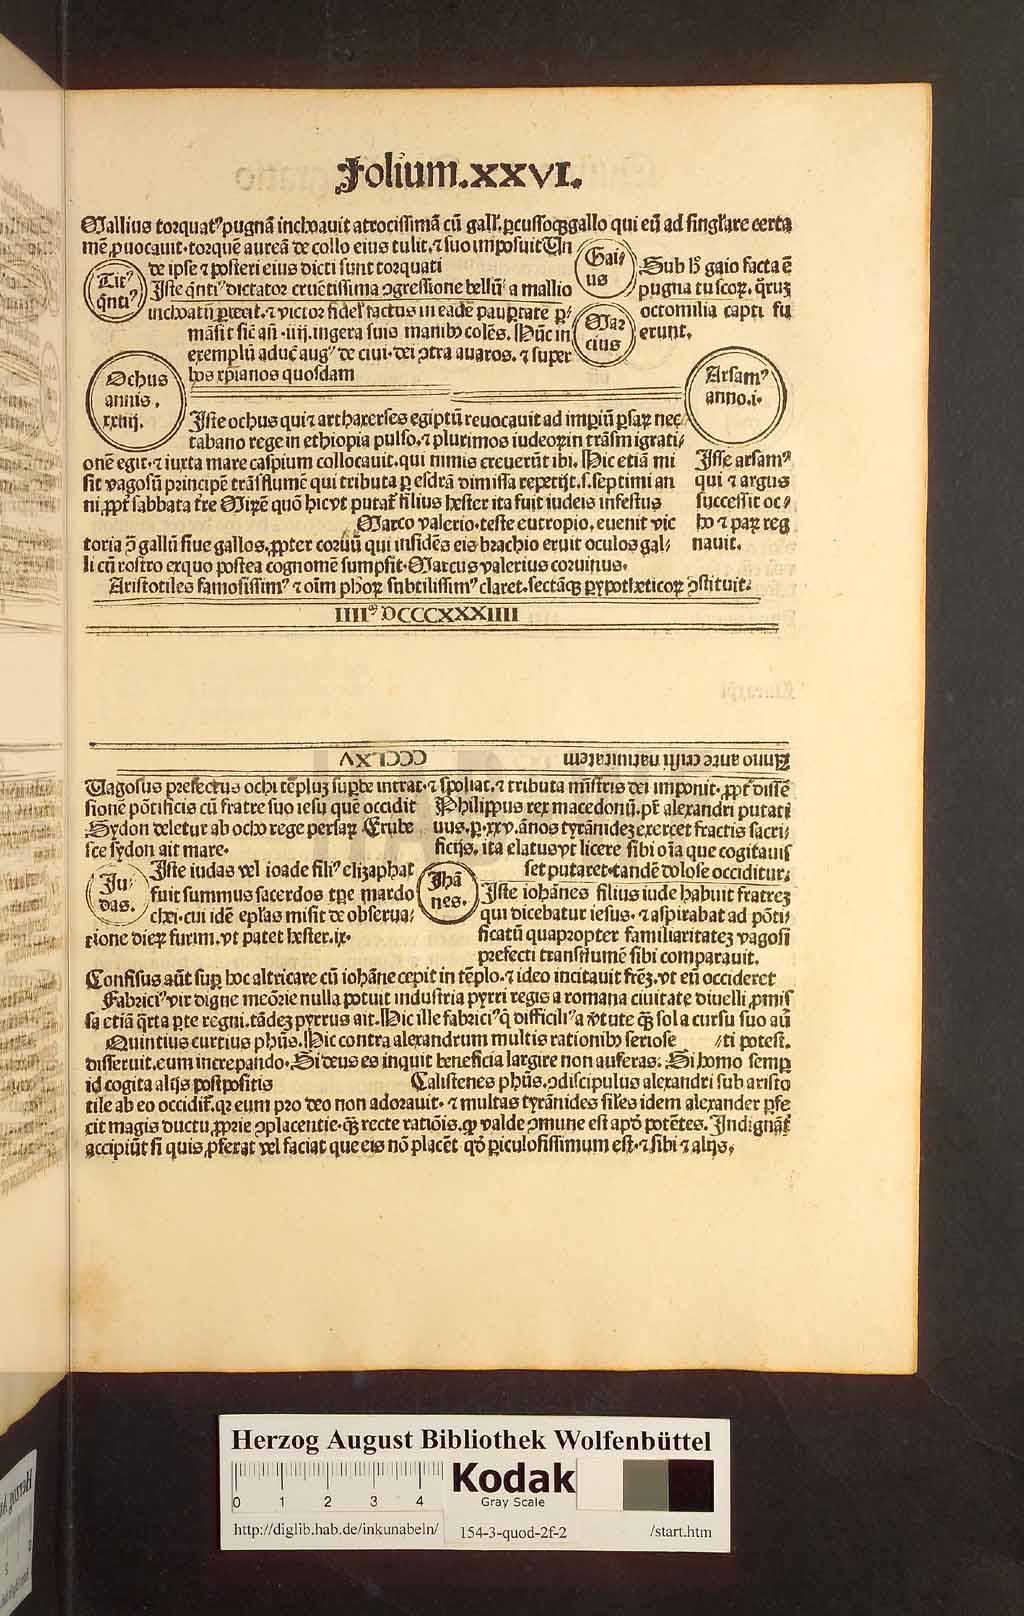 Folium.XXVI.
Mallius torquatꝰ pugnā inchoavit atrocissimā cū gall̓. ꝑcussoqꝫ gallo qui eū ad singl̓are certa
mē ꝓuocauit. torquē aureā de collo eius tulit. ⁊ suo imposuit Un
de ipse ⁊ posteri eius dicti sunt torquati
Titꝰ
q̄ntiꝰ
Iste q̄ntiꝰ dictator cruētissima ꝯgressione bellū a mallio
inchoatū ꝑegit. ⁊ victor fidel̓ factus in eadē pauꝑtate ꝑ/
māsit sic̄ an̄ .iiij. iugera suis manibꝰ colēs. Hūc in
exemplū aduc̄ augꝰ de ciui. dei ꝯtra auaros. ⁊ super
bos xpianos quosdam
Gai/
us
Mar
cius
Sub hꝰ gaio facta ē
pugna tuscoꝝ. q̄ruꝫ
octomilia capti fu
erunt.
Ochus
annis.
xxiiij.
Arsamꝰ
anno.i.
Iste ochus qui ⁊ artharerses egiptū reuocauit ad impiū ꝑsaꝝ nec
tabano rege in ethiopia pulso. ⁊ plurimos iudeoꝝ in trāsmigrati/
onē egit. ⁊ iuxta mare caspium collocauit. qui nimis creuerūt ibi. Hic etiā mi
sit vagosū principē trāsflumē qui tributa ꝑ esdrā dimissa repetijt. s. septimi an
ni ꝓpt̓ sabbata tr̄e Mirē quō hic vt putat̓ filius hester ita fuit iudeis infestus
Isse arsamꝰ
qui ⁊ argus
successit oc/
ho ⁊ paꝝ reg
nauit.
Marco valerio. teste eutropio. euenit vic
toria ꝯ̄ gallū siue gallos. ꝓpter coruū qui insidēs eis brachio eruit oculos gal/
li cū rostro ex quo postea cognomē sumpsit. Marcus valerius coruinus.
Aristotiles famosissimꝰ ⁊ oīm phoꝝ subtilissimꝰ claret. sectāqꝫ ꝑypotheticoꝝ ꝯstituit.
IIIIꝯ DCCCXXXIIII
Anno ante cristi natiuitatem CCCLXV
Uagosus prefectus ochi tēpluꝫ suꝑbe intrat. ⁊ spoliat. ⁊ tributa mīstris dei imponit. ꝓpt̓ dissē
sionē pōtificis cū fratre suo iesu quē occidit
Sydon deletur ab ocho rege persaꝝ Erube
sce sydon ait mare.
Philippus rex macedonū. pt̓ alexandri putati
uus. ꝑ. xxv. ānos tyrānideꝫ exercet fractis sacri/
ficijs. ita elatus vt licere sibi oīa que cogitauis
set putaret. tandē dolose occiditur.
Ju/
das.
Iste iudas vel ioade filiꝰ eliꝫaphat
fuit summus sacerdos tꝑe mardo
chei. cui idē epl̄as misit de obserua/
tione dieꝝ furim. vt patet hester. ix.
Ihā
nes.
Iste iohānes filius iude habuit fratreꝫ
qui dicebatur iesus. ⁊ aspirabat ad pōti/
ficatū quapropter familiaritateꝫ vagosi
prefecti transflumē sibi comparauit.
Confisus aūt suꝑ hoc altricare cū iohāne cepit in tēplo. ⁊ ideo incitauit frēꝫ. vt eū occideret
Fabriciꝰ vir digne meōrie nulla potuit industria pyrri regis a romana ciuitate diuelli ꝓmis
sa etiā q̄rta ꝑte regni. tādeꝫ pyrrus ait. Hic ille fabriciꝰ q̄ difficiliꝰ a v̓tute q̄ꝫ sol a cursu suo au̓
ti potest.
Quintius curtius phūs. Hic contra alexandrum multis rationibꝰ seriose
disseruit. eum increpando. Si deus es inquit beneficia largire non auferas. Si homo semꝑ
id cogita alijs postpositis
Calistenes phūs. ꝯdiscipulus alexandri sub aristo
tile ab eo occidit̓. qꝛ eum pro deo non adorauit. ⁊ multas tyrānides sil̓es idem alexander ꝑfe
cit magis ductu ꝓprie ꝯplacentie. q̄ꝫ recte ratiōis. qꝫ valde ꝯmune est apd̓ potētes. Indignāt̓
accipiūt si quis ꝓferat vel faciat que eis nō placēt qd̓ ꝑiculosissimum est. ⁊ sibi ⁊ alijs.
Herzog August Bibliothek Wolfenbüttel
0 1 2 3 4
Kodak
Gray Scale
http://diglib.hab.de/inkunabeln/ 154-3-quod-2f-2 /start.htm